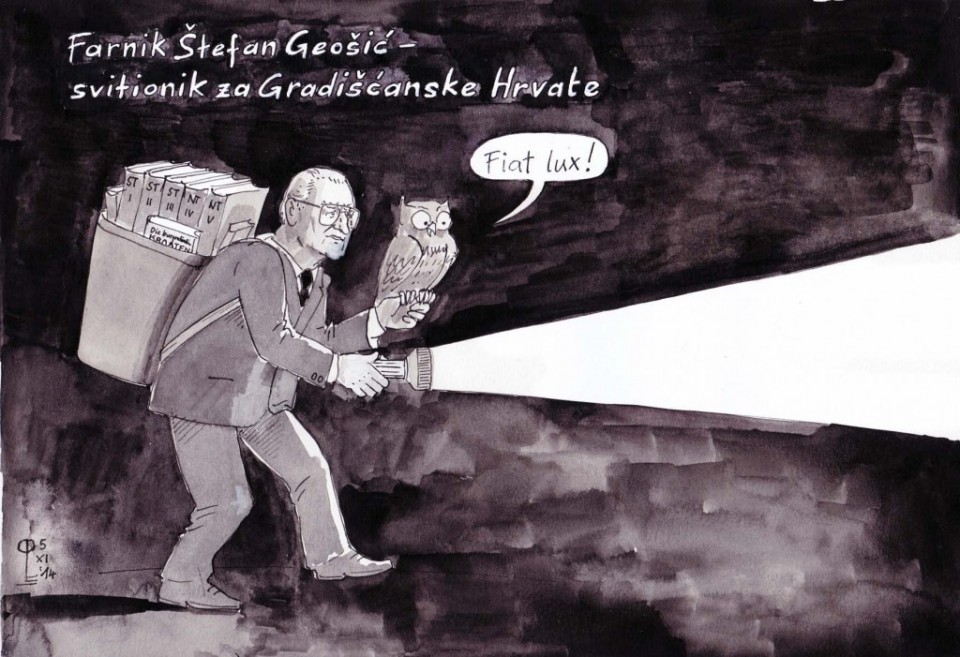 Farnik Štefan Geošić –
svitionik za Gradišćanske Hrvate
Fiat lux!
ST
I
ST
II
ST
III
NT
IV
NT
V
Die burgenländ.
KROATEN
5
XI
'14